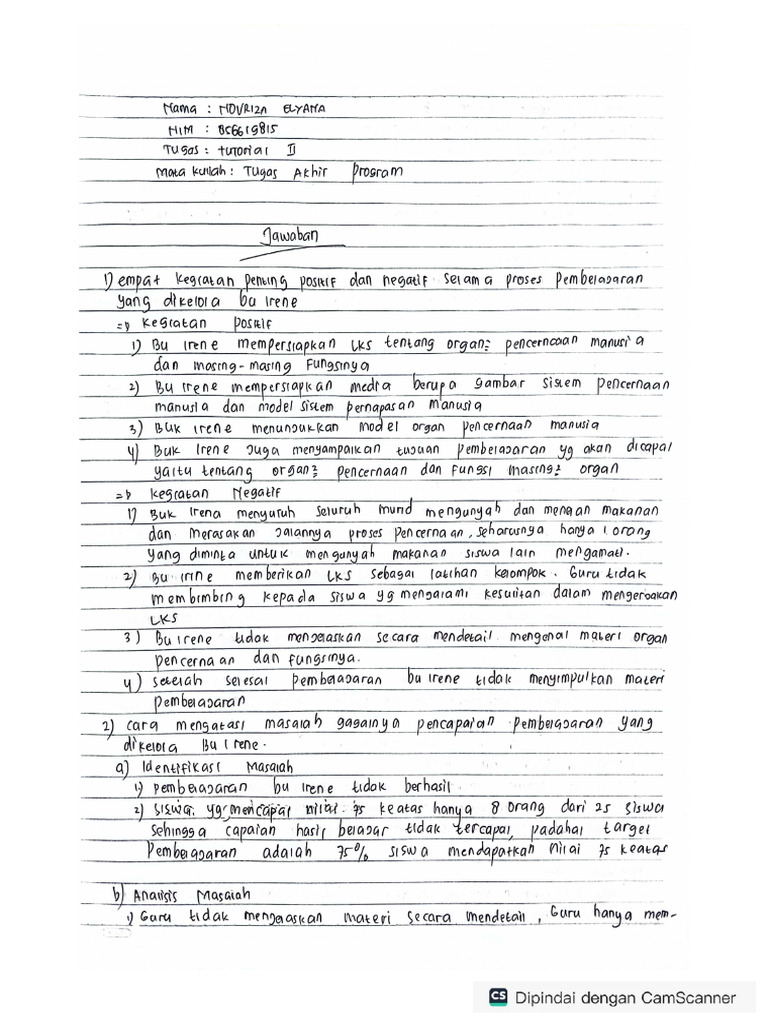 Nama : NOVRIZA ELYANA
NIM : 856619815
Tugas : tutorial II
Mata kuliah : Tugas Akhir Program
Jawaban
1) empat kegiatan penting positif dan negatif selama proses pembelajaran
yang dikelola bu irene
=> kegiatan positif
1) Bu irene mempersiapkan LKS tentang organ² pencernaan manusia
dan masing-masing fungsinya
2) Bu irene mempersiapkan media berupa gambar sistem pencernaan
manusia dan model sistem pernapasan manusia
3) Buk irene menunjukkan model organ pencernaan manusia
4) Buk irene juga menyampaikan tujuan pembelajaran yg akan dicapai
yaitu tentang organ² pencernaan dan fungsi masing² organ
=> kegiatan Negatif
1) Buk irena menyuruh seluruh murid mengunyah dan menjan makanan
dan merasakan jalannya proses pencernaan, seharusnya hanya 1 orang
yang diminta untuk mengunyah makanan siswa lain mengamati.
2) Bu irine memberikan LKS sebagai latihan kelompok. Guru tidak
membimbing kepada siswa yg mengalami kesulitan dalam mengerjakan
LKS
3) Bu irene tidak menjelaskan secara mendetail mengenai materi organ
pencernaan dan fungsinya.
4) setelah selesai pembelajaran bu irene tidak menyimpulkan materi
pembelajaran
2) cara mengatasi masalah gagalnya pencapaian pembelajaran yang
dikelola Bu Irene.
a) Identifikasi Masalah
1) pembelajaran bu irene tidak berhasil
2) siswa yg mencapai nilai 75 keatas hanya 8 orang dari 25 siswa
sehingga capaian hasil belajar tidak tercapai, padahal target
pembelajaran adalah 75% siswa mendapatkan nilai 75 keatas
b) Analisis Masalah
1) Guru tidak menjelaskan materi secara mendetail, Guru hanya mem-
CS Dipindai dengan CamScanner